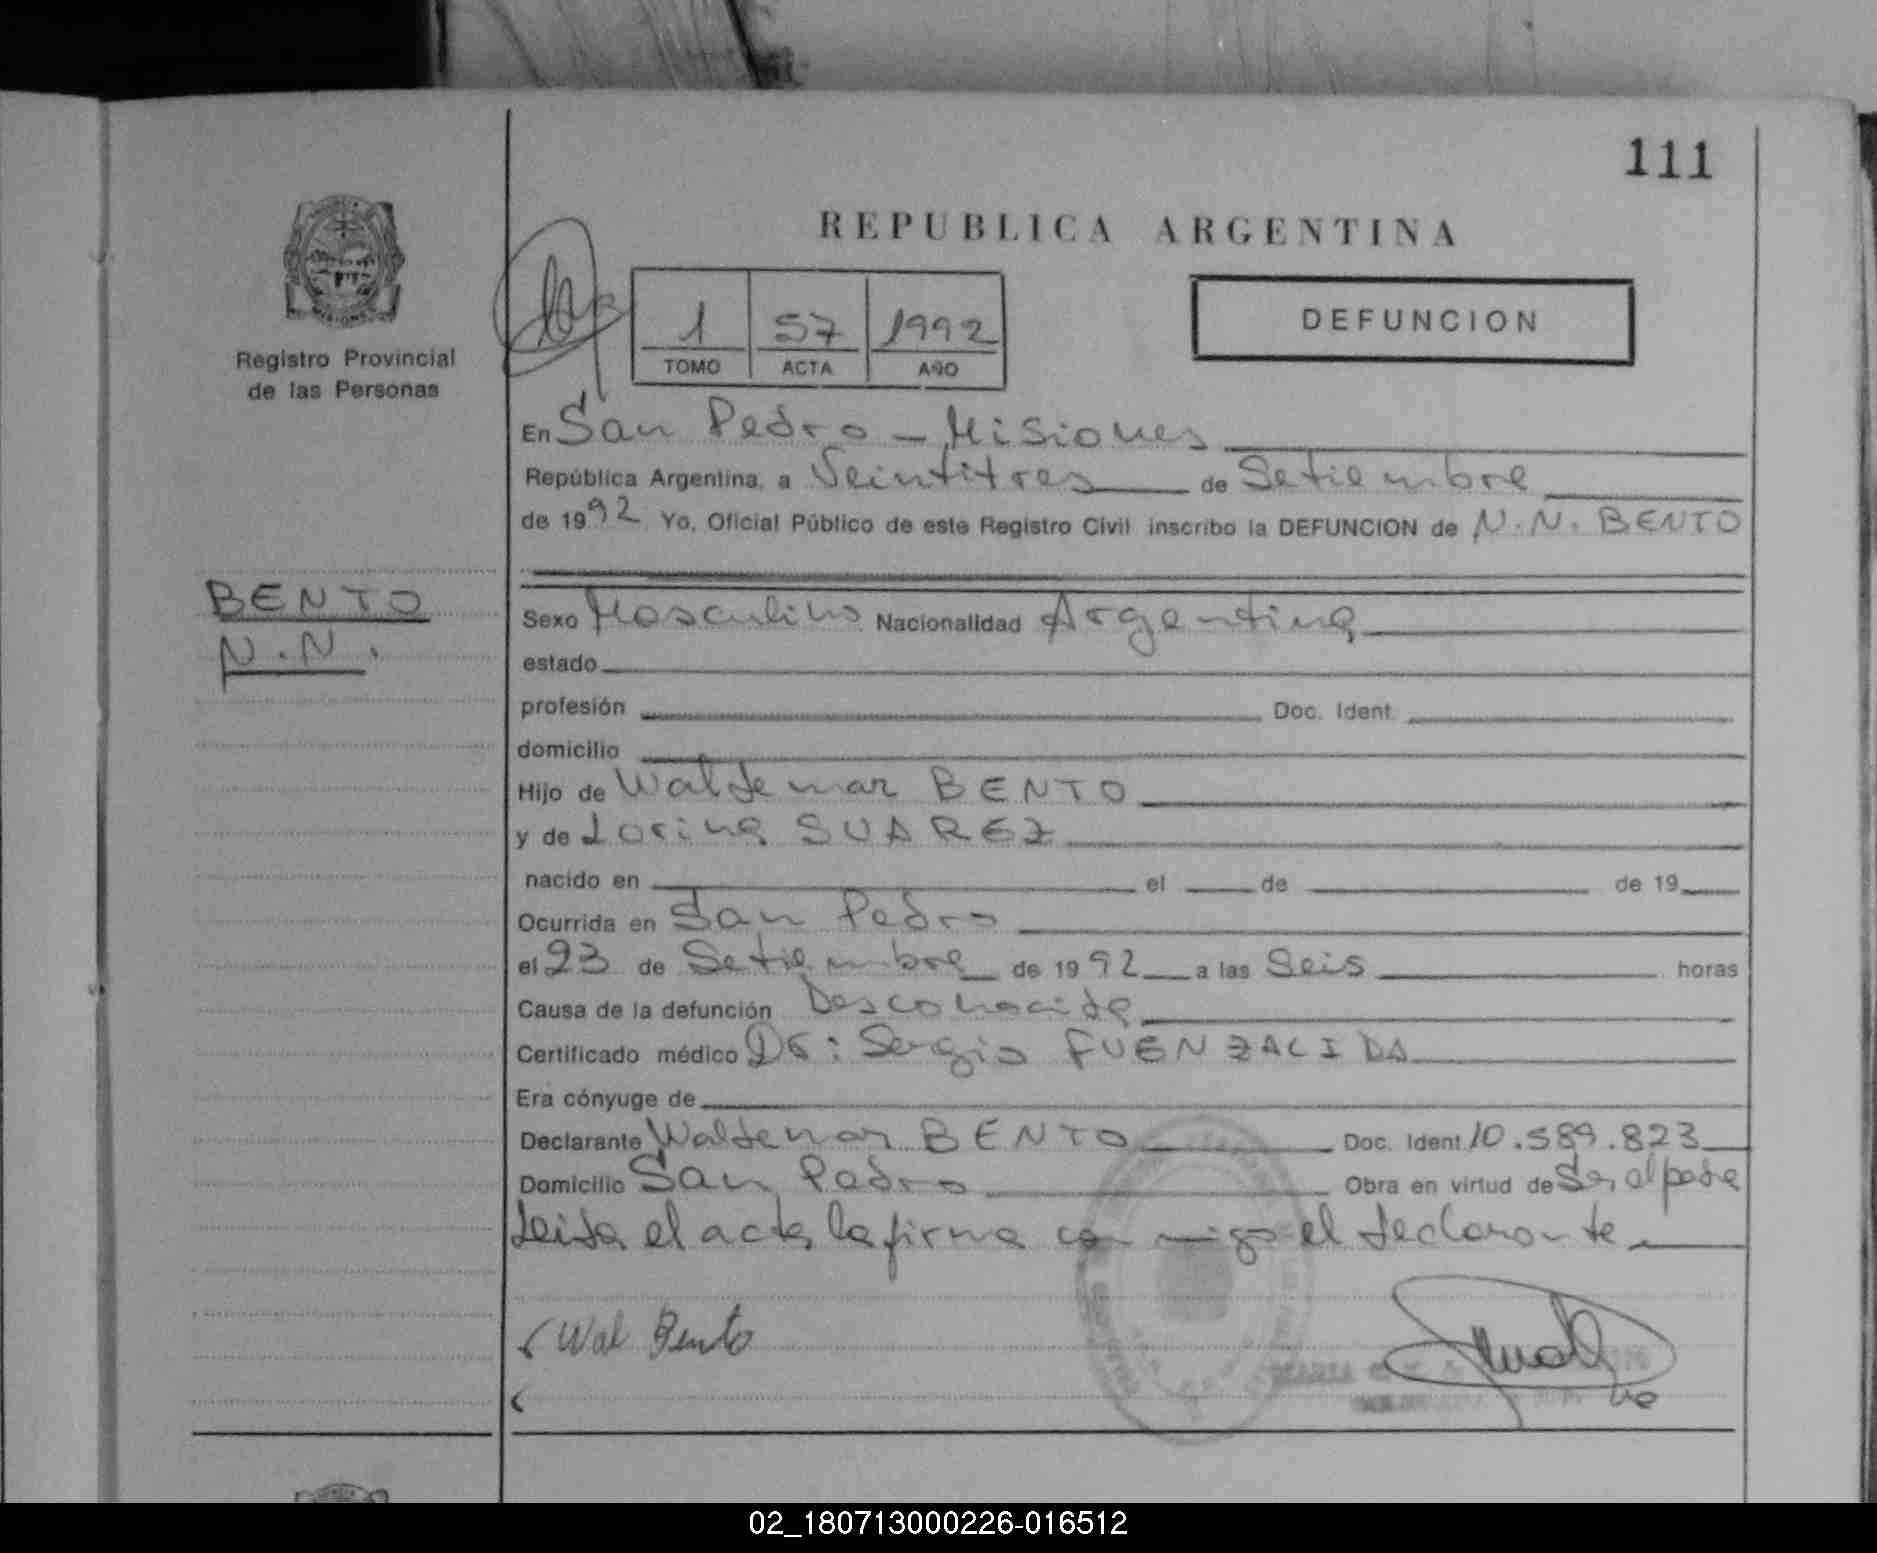 111
REPUBLICA ARGENTINA
Registro Provincial
de las Personas
1 57 1992
TOMO ACTA AÑO
DEFUNCION
En San Pedro - Misiones
República Argentina, a Veintitres de Setiembre
de 1992 Yo, Oficial Público de este Registro Civil inscribo la DEFUNCION de N.N. BENTO
BENTO
N.N.
Sexo Masculino Nacionalidad Argentina
estado
profesión Doc. Ident.
domicilio
Hijo de Waldemar BENTO
y de Lorina SUAREZ
nacido en el de de 19
Ocurrida en San Pedro
el 23 de Setiembre de 1992 a las Seis horas
Causa de la defunción Desconocida
Certificado médico Dr: Sergio FUENZALIDA
Era cónyuge de
Declarante Waldemar BENTO Doc. Ident. 10.589.823
Domicilio San Pedro Obra en virtud de Ser el padre
Leida el acta la firma conmigo el declarante
Wal Bento
02_180713000226-016512